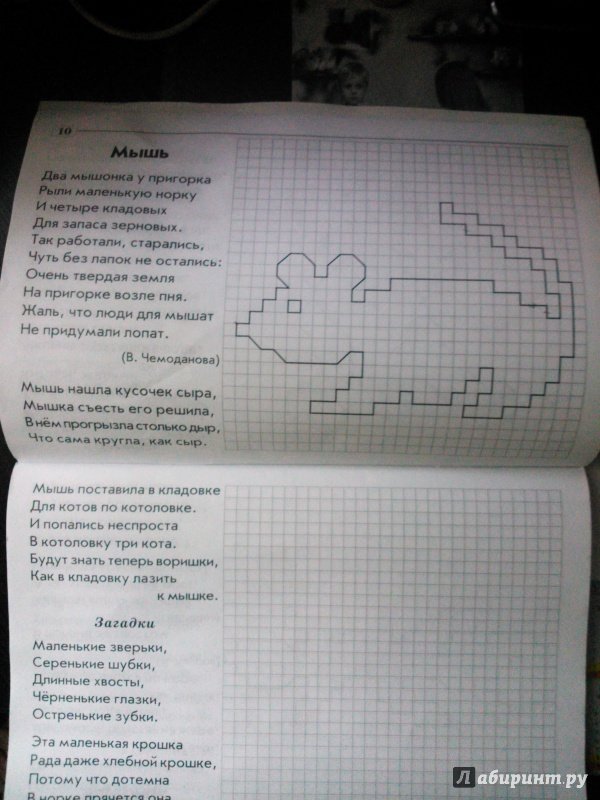 10
Мышь
Два мышонка у пригорка
Рыли маленькую норку
И четыре кладовых
Для запаса зерновых.
Так работали, старались,
Чуть без лапок не остались:
Очень твердая земля
На пригорке возле пня.
Жаль, что люди для мышат
Не придумали лопат.
(В. Чемоданова)
Мышь нашла кусочек сыра,
Мышка съесть его решила,
В нём прогрызла столько дыр,
Что сама кругла, как сыр.
Мышь поставила в кладовке
Для котов по котоловке.
И попались неспроста
В котоловку три кота.
Будут знать теперь воришки,
Как в кладовку лазить
к мышке.
Загадки
Маленькие зверьки,
Серенькие шубки,
Длинные хвосты,
Чёрненькие глазки,
Остренькие зубки.
Эта маленькая крошка
Рада даже хлебной крошке,
Потому что дотемна
В норке прячется она
Лабиринт.ру